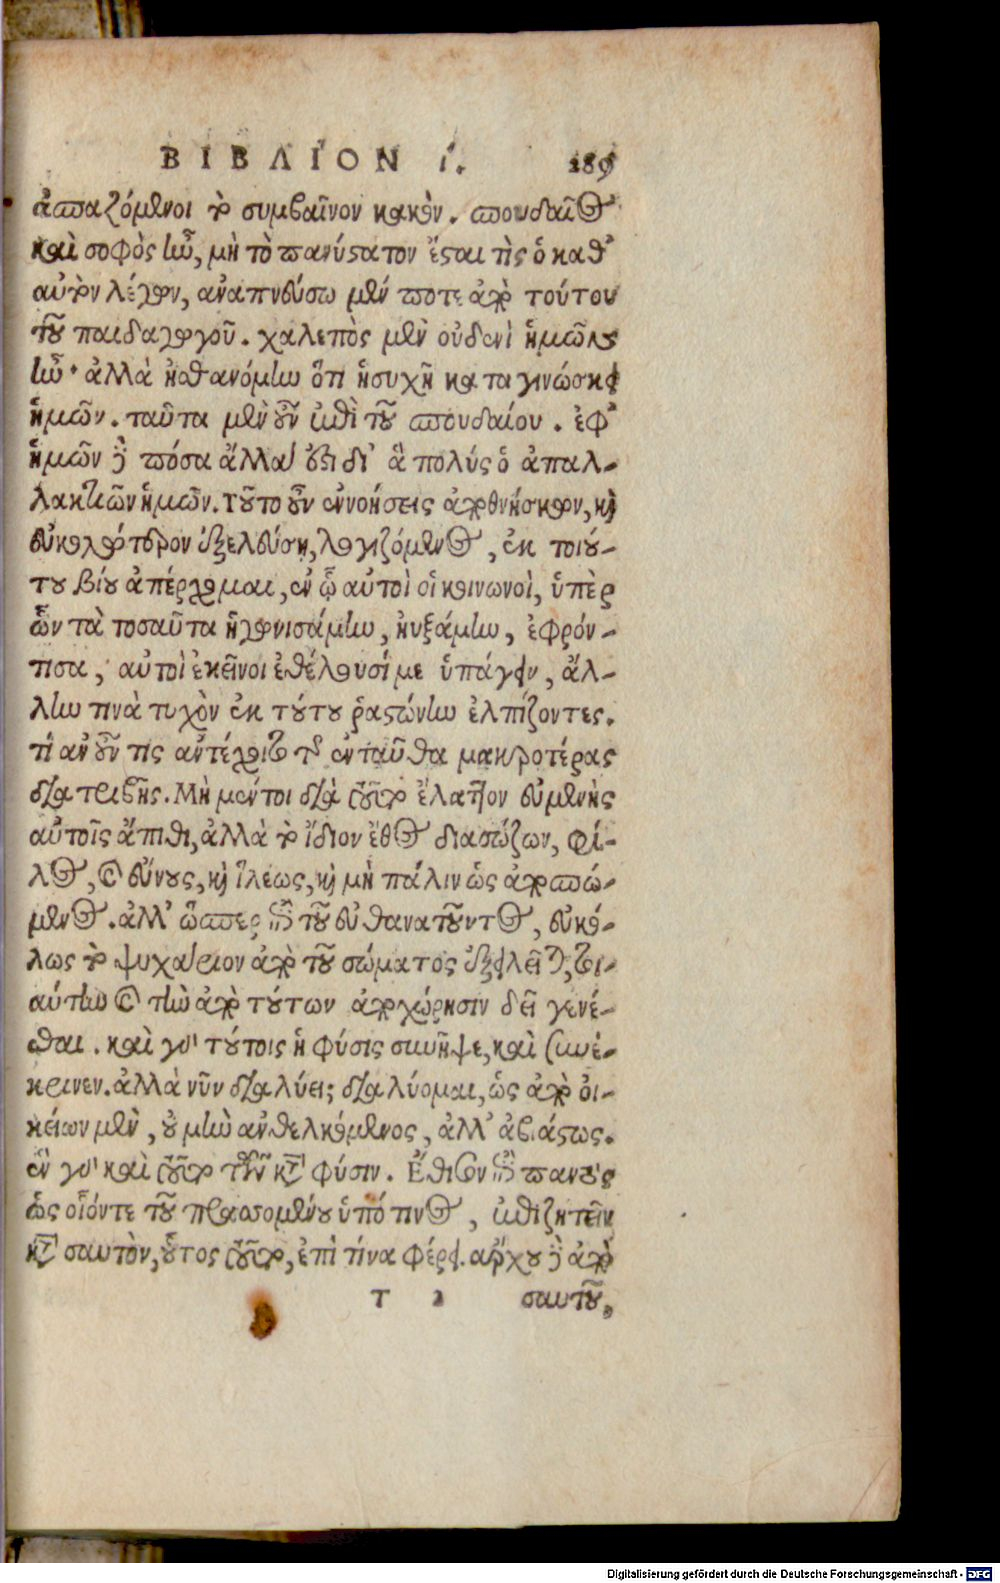 ΒΙΒΛΙΟΝ ί. 189
ἀσπαζόμενοι τὸ συμβαῖνον κακόν. σπουδαῖος
καὶ σοφὸς ἦν, μὴ τὸ πανύστατον ἔσται τὶς ὁ καθ᾽
αὑτὸν λέγων, ἀναπνεύσω μέν ποτε ἀπὸ τούτου
τοῦ παιδαγωγοῦ. χαλεπὸς μὲν οὐδενὶ ἡμῶν
ἦν· ἀλλὰ ᾐσθανόμην ὅτι ἡσυχῆ καταγινώσκει
ἡμῶν. ταῦτα μὲν οὖν ἐπὶ τοῦ σπουδαίου. ἐφ᾽
ἡμῶν δὲ πόσα ἄλλα ἐστὶ δι᾽ ἃ πολύς ὁ ἀπαλ-
λακτιῶν ἡμῶν. τοῦτο οὖν ἐννοήσεις ἀποθνήσκων, καὶ
εὐκολώτερον ἐξελεύσῃ, λογιζόμενος, ἐκ τοιού-
του βίου ἀπέρχομαι, ἐν ᾧ αὐτοὶ οἱ κοινωνοὶ, ὑπὲρ
ὧν τὰ τοσαῦτα ἠγωνισάμην, ηὐξάμην, ἐφρόν-
τισα, αὐτοὶ ἐκεῖνοι ἐθέλουσί με ὑπάγειν, ἄλ-
λην τινὰ τυχὸν ἐκ τούτου ῥαστώνην ἐλπίζοντες.
τί ἂν οὖν τις ἀντέχοιτο τῆς ἐνταῦθα μακροτέρας
διατριβῆς. Μὴ μέντοι διὰ τοῦτο ἔλαττον εὐμενὴς
αὐτοῖς ἄπιθι, ἀλλὰ τὸ ἴδιον ἔθος διασώζων, φί-
λος, καὶ εὔνους, καὶ ἵλεως, καὶ μὴ πάλιν ὡς ἀποσπώ-
μενος. ἀλλ᾽ ὥσπερ ἐπὶ τοῦ εὐθανατοῦντος, εὐκό-
λως τὸ ψυχάριον ἀπὸ τοῦ σώματος ἐξειλεῖται, τοι-
αύτην καὶ τὴν ἀπὸ τούτων ἀποχώρησιν δεῖ γενέ-
σθαι. καὶ γὰρ τούτοις ἡ φύσις συνῆψε, καὶ συνέ-
κρινεν. ἀλλὰ νῦν διαλύει; διαλύομαι, ὡς ἀπὸ οἰ-
κείων μὲν, οὐ μὴν ἀνθελκόμενος, ἀλλ᾽ ἀβιάστως.
ἓν γὰρ καὶ τοῦτο τῶν κατὰ φύσιν. Ἔθισον ἐπὶ παντὸς
ὡς οἷόντε τοῦ πρασσομένου ὑπό τινος, ἐπιζητεῖν
κατὰ σαυτὸν, οὗτος τοῦτο, ἐπὶ τίνα φέρει. ἄρχου δὲ ἀπὸ
T 2 σαυτοῦ,
Digitalisierung gefördert durch die Deutsche Forschungsgemeinschaft - DFG